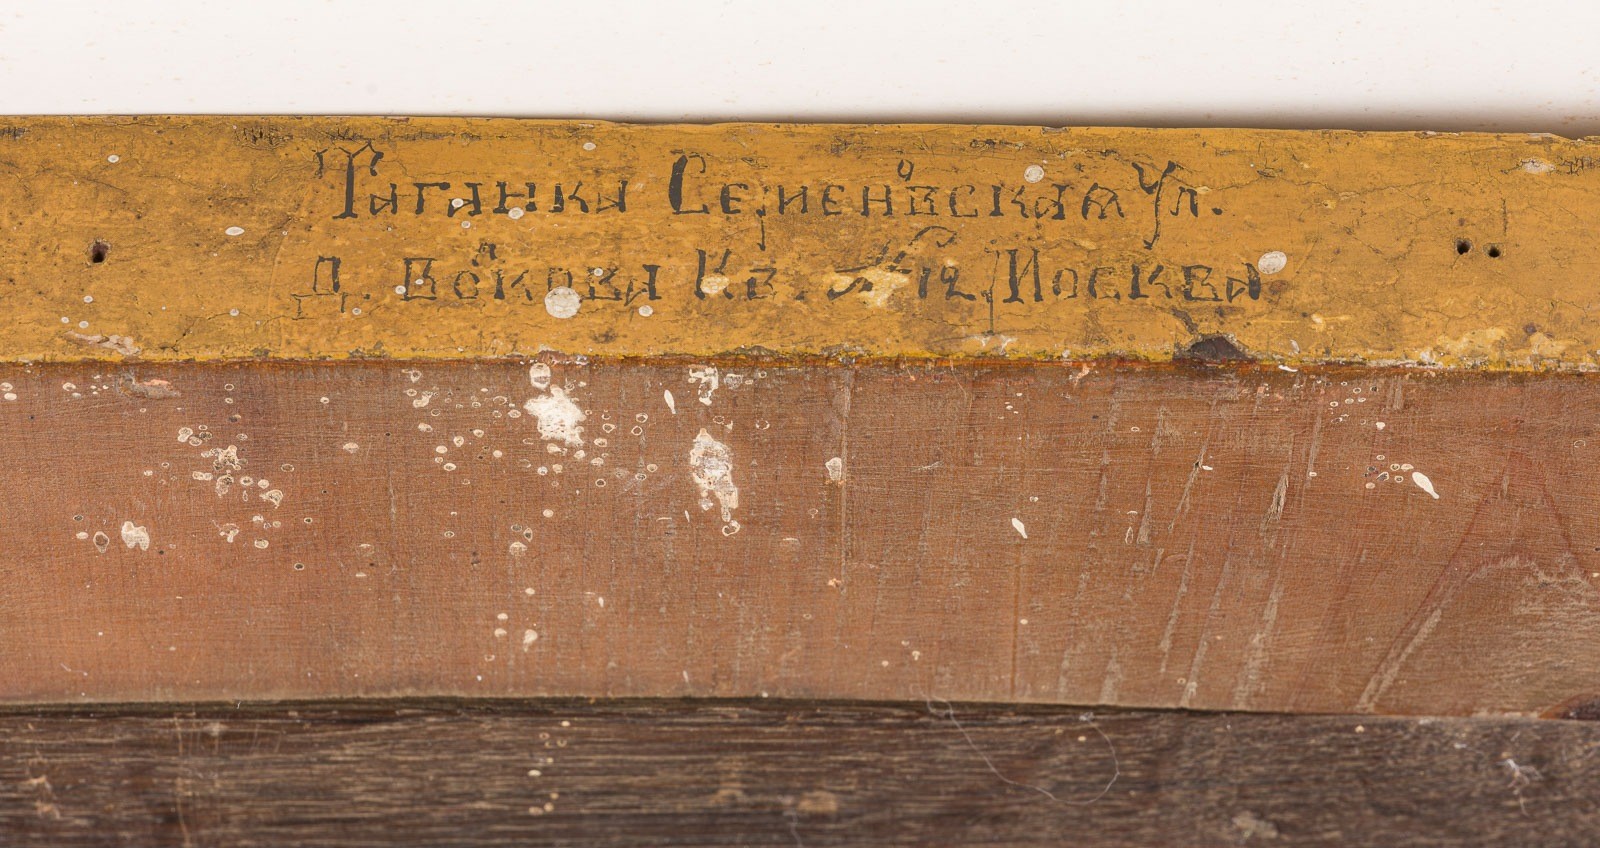 Таганка Семеновская Ул.
Д. Бокова Кв. № 12. Москва